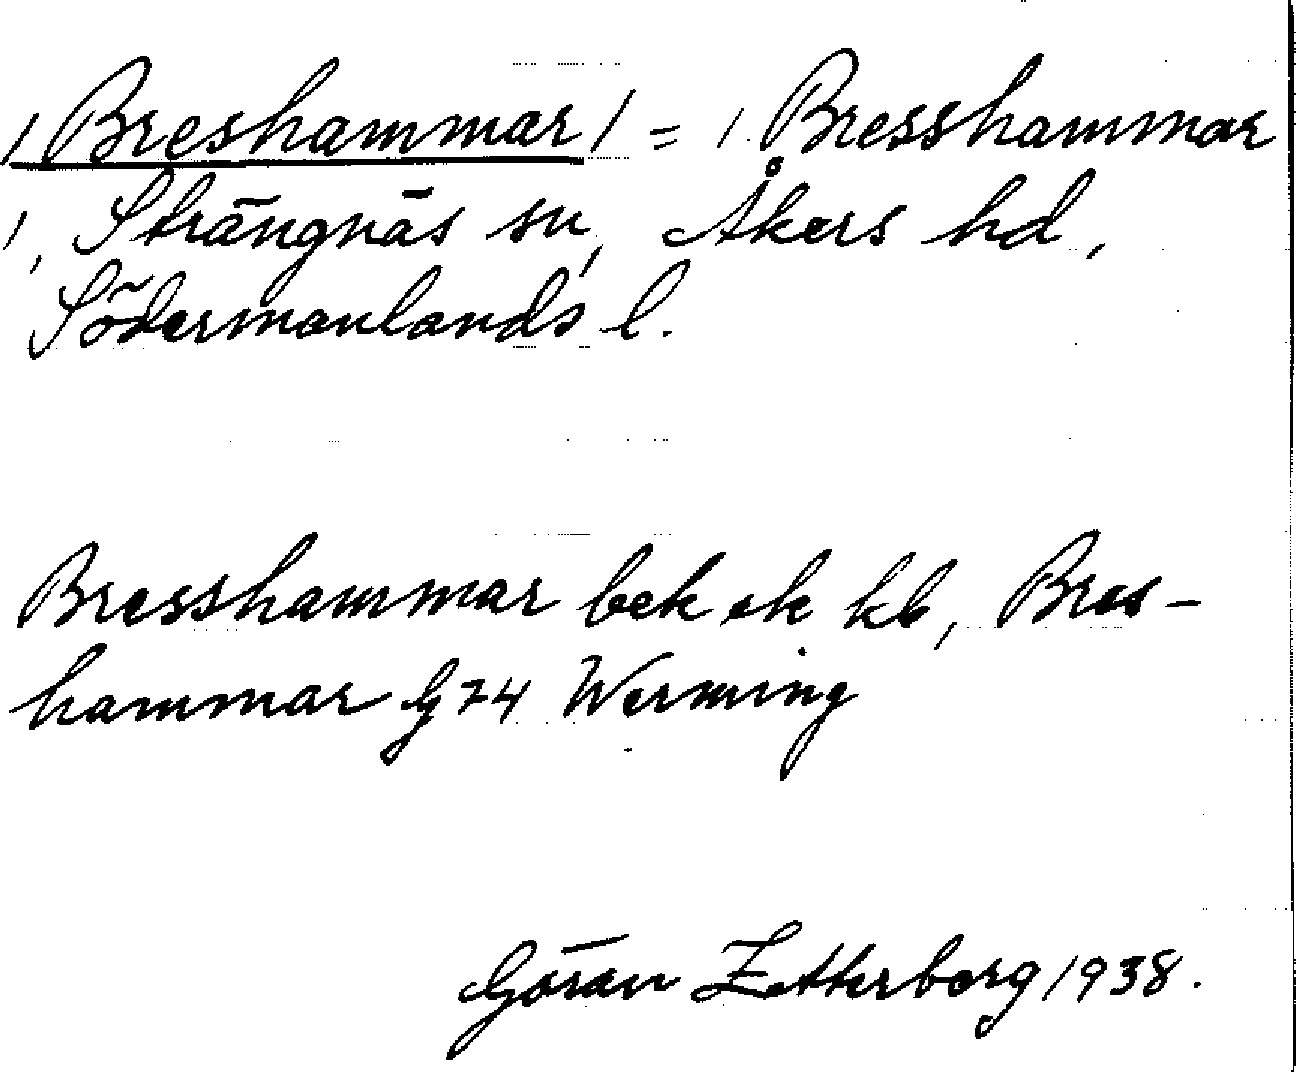 /Breshammar/ = /Bresshammar
/, Strängnäs sn, Åkers hd,
Södermanlands l.
Bresshammar bek ek kb, Bres-
hammar G 74 Werming
Göran Zetterberg 1938.